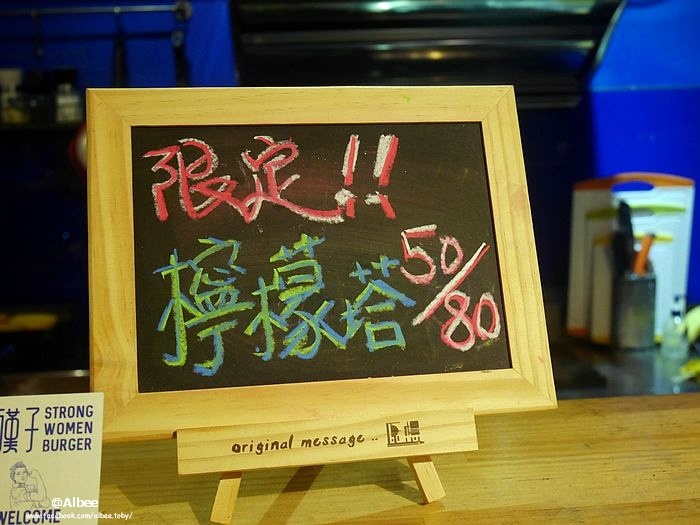 限定!!
檸檬塔 50/80
original message ..
漢子 STRONG
WOMEN
BURGER
WELCOME
@Albee
www.facebook.com/albee.toby/